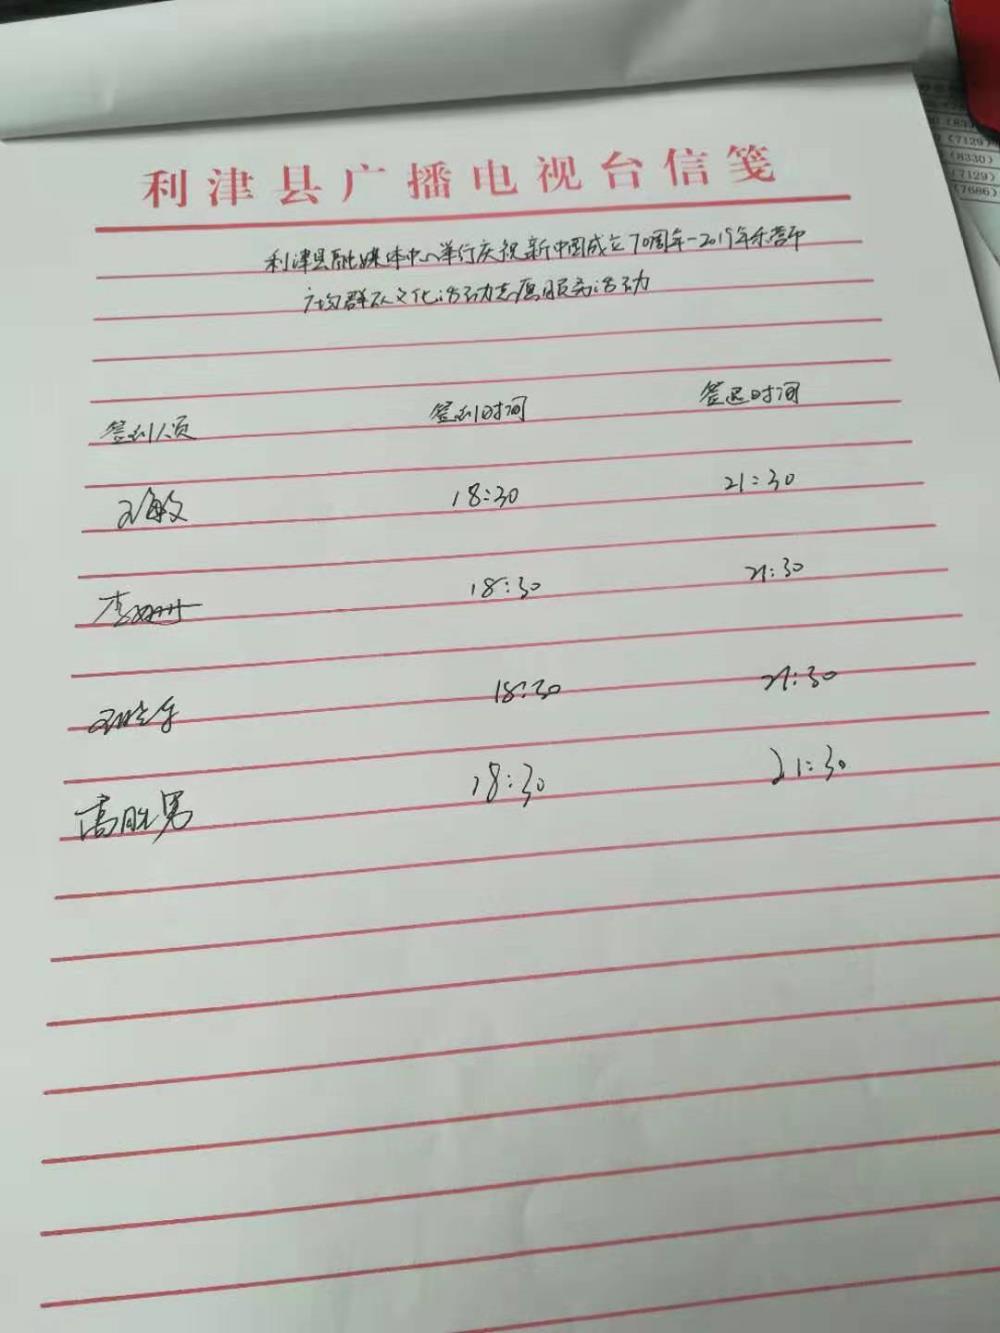 利津县广播电视台信笺
利津县融媒体中心举行庆祝新中国成立70周年-2019年东营市
广场群众文化活动志愿服务活动
签到人员 签到时间 签退时间
18:30 21:30
李姗姗 18:30 21:30
18:30 21:30
高胜男 18:30 21:30
(8330)
(7129)
(7686)